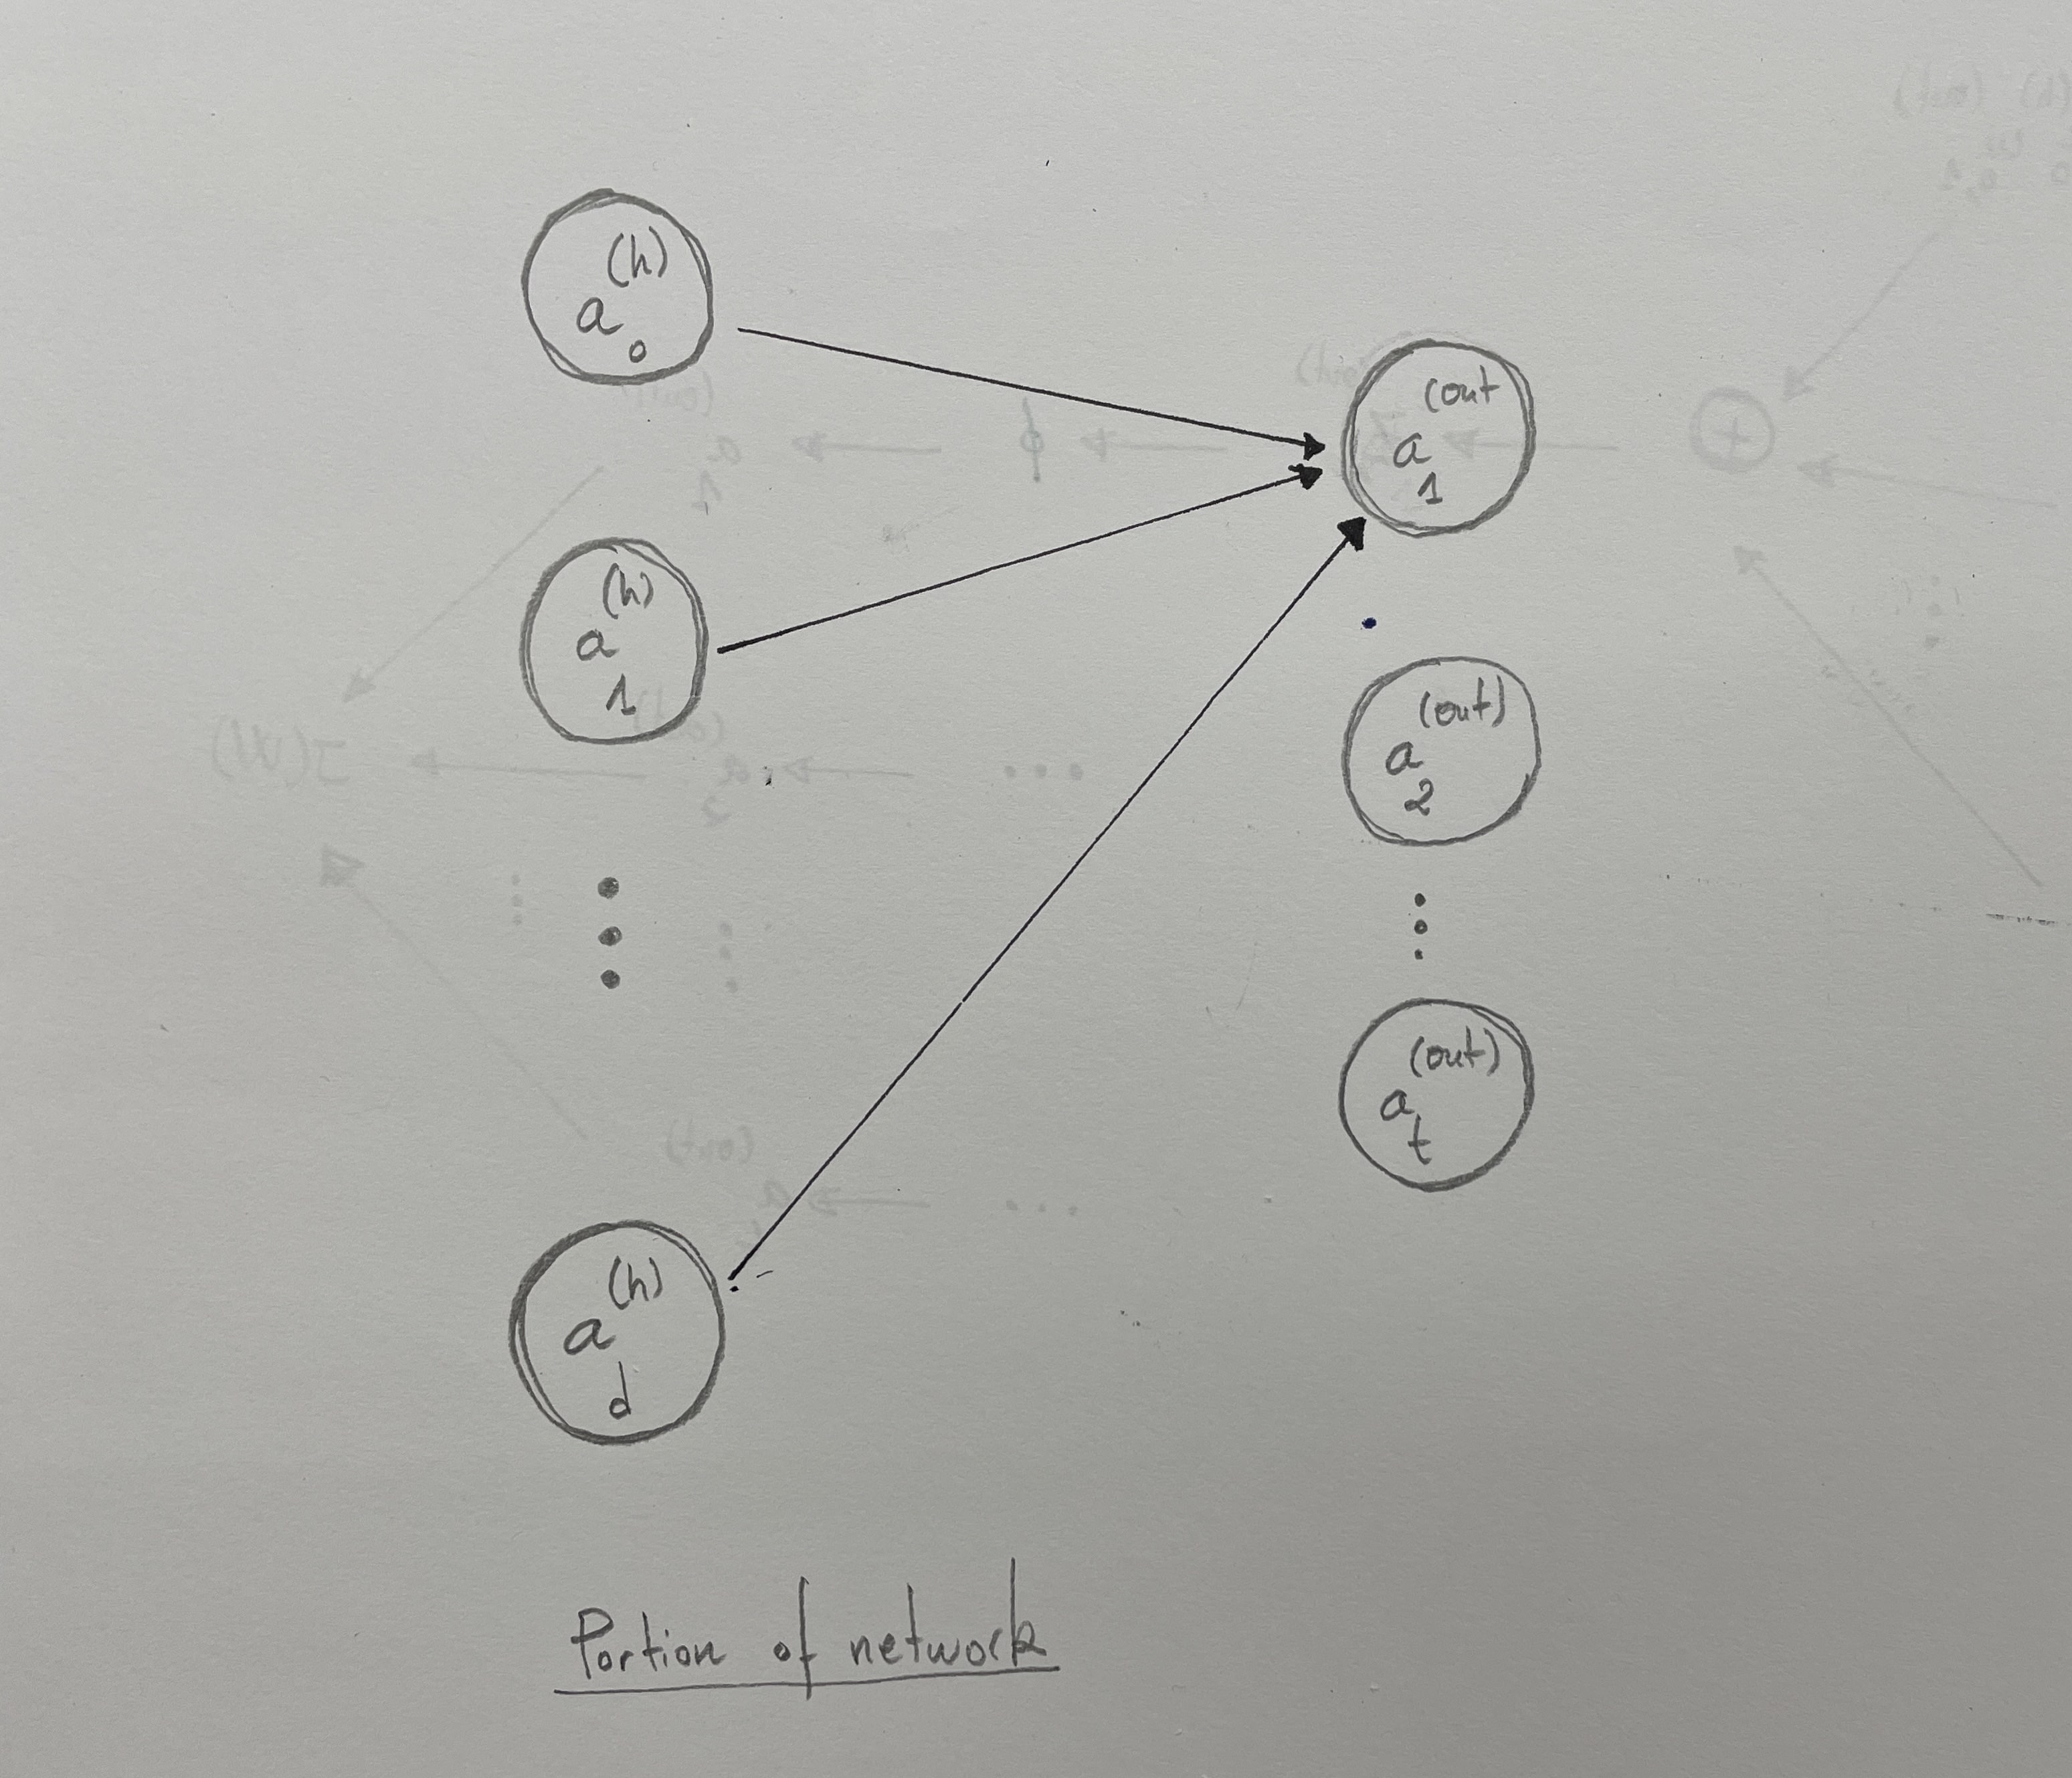 a₀^(h)
a₁^(h)
a_d^(h)
a₁^(out
a₂^(out)
a_t^(out)
Portion of network